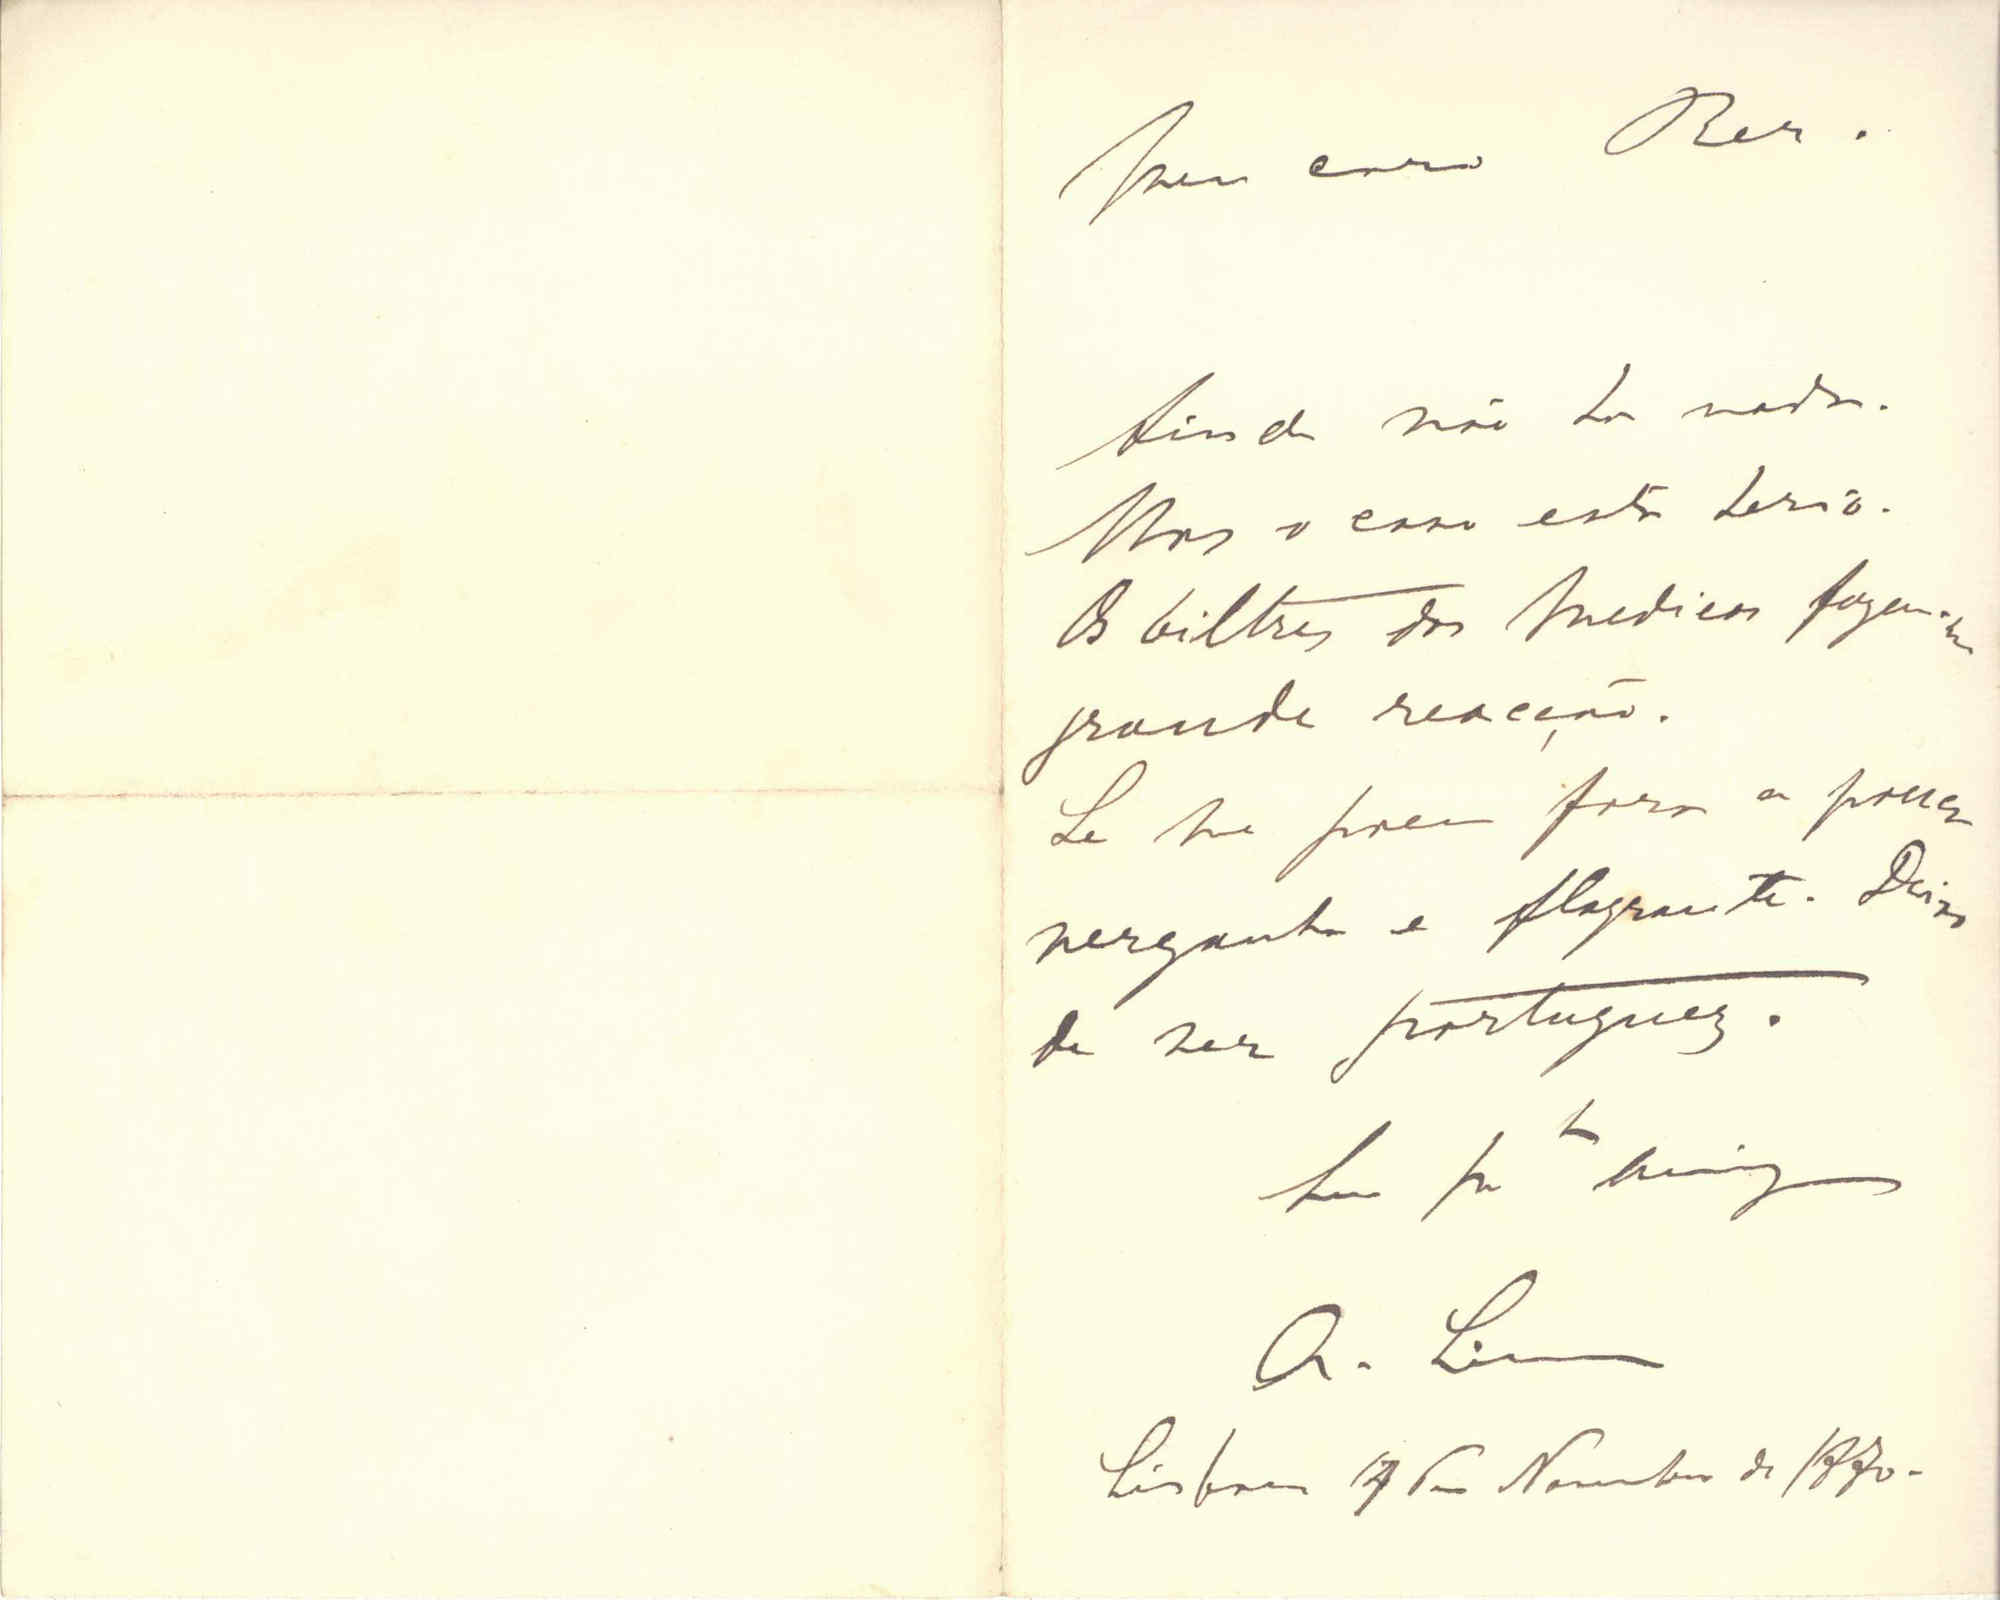 Meu caro
Ainda não ha nada.
Mas o caso está serio.
Os biltres dos medicos fazem-m
grande reacção.
Se me poem fora a pouca
vergonha e flagrante. Deixo
de ser portuguez.
Seu amigo
A. Lima
Lisboa 17 de Novembro de